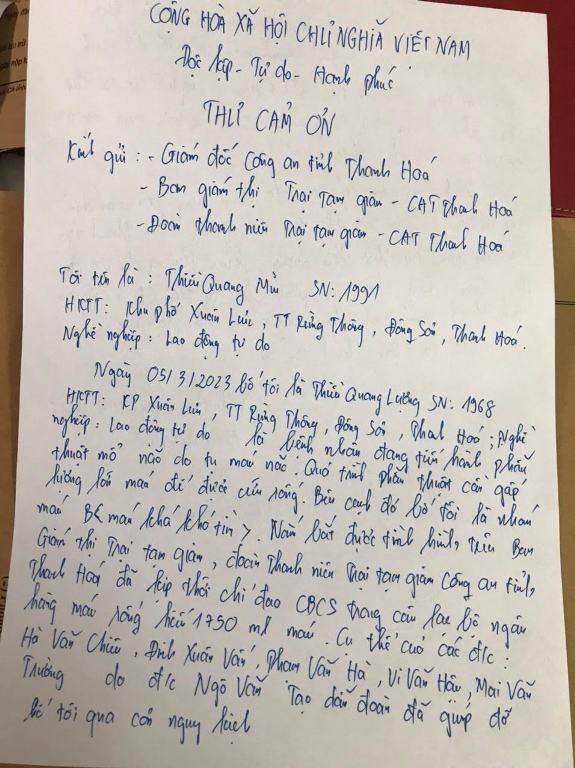 CỘNG HÒA XÃ HỘI CHỦ NGHĨA VIỆT NAM
Độc lập - Tự do - Hạnh phúc
THƯ CẢM ƠN
Kính gửi : - Giám đốc Công an tỉnh Thanh Hoá
- Ban giám thị Trại tạm giam - CAT Thanh Hoá
- Đoàn thanh niên Trại tạm giam - CAT Thanh Hoá
Tôi tên là : Thiều Quang SN: 1991
HKTT: Khu phố Xuân Lưu, TT Rừng Thông, Đông Sơn, Thanh Hoá.
Nghề nghiệp : Lao động tự do
Ngày 05/3/2023 bố tôi là Thiều Quang Lượng SN: 1968
HKTT: KP Xuân Lưu, TT Rừng Thông, Đông Sơn, Thanh Hoá; Nghề
nghiệp: Lao động tự do là bệnh nhân đang tiến hành phẫu
thuật mổ não do tụ máu não. Quá trình phẫu thuật cần gấp
lượng lớn máu để được cứu sống. Bên cạnh đó bố tôi là nhóm
máu khá khó tìm. Nắm bắt được tình hình trên Ban
Giám thị Trại tạm giam, đoàn thanh niên Trại tạm giam Công an tỉnh
Thanh Hoá đã kịp thời chỉ đạo CBCS trong câu lạc bộ ngân
hàng máu sống hiến 1750 ml máu. Cụ thể của các đ/c :
Hà Văn Chiến, Đinh Xuân Văn, Phạm Văn Hà, Vi Văn Hậu, Mai Văn
Trường do đ/c Ngô Văn Tạo dẫn đoàn đã giúp đỡ
bố tôi qua cơn nguy kịch